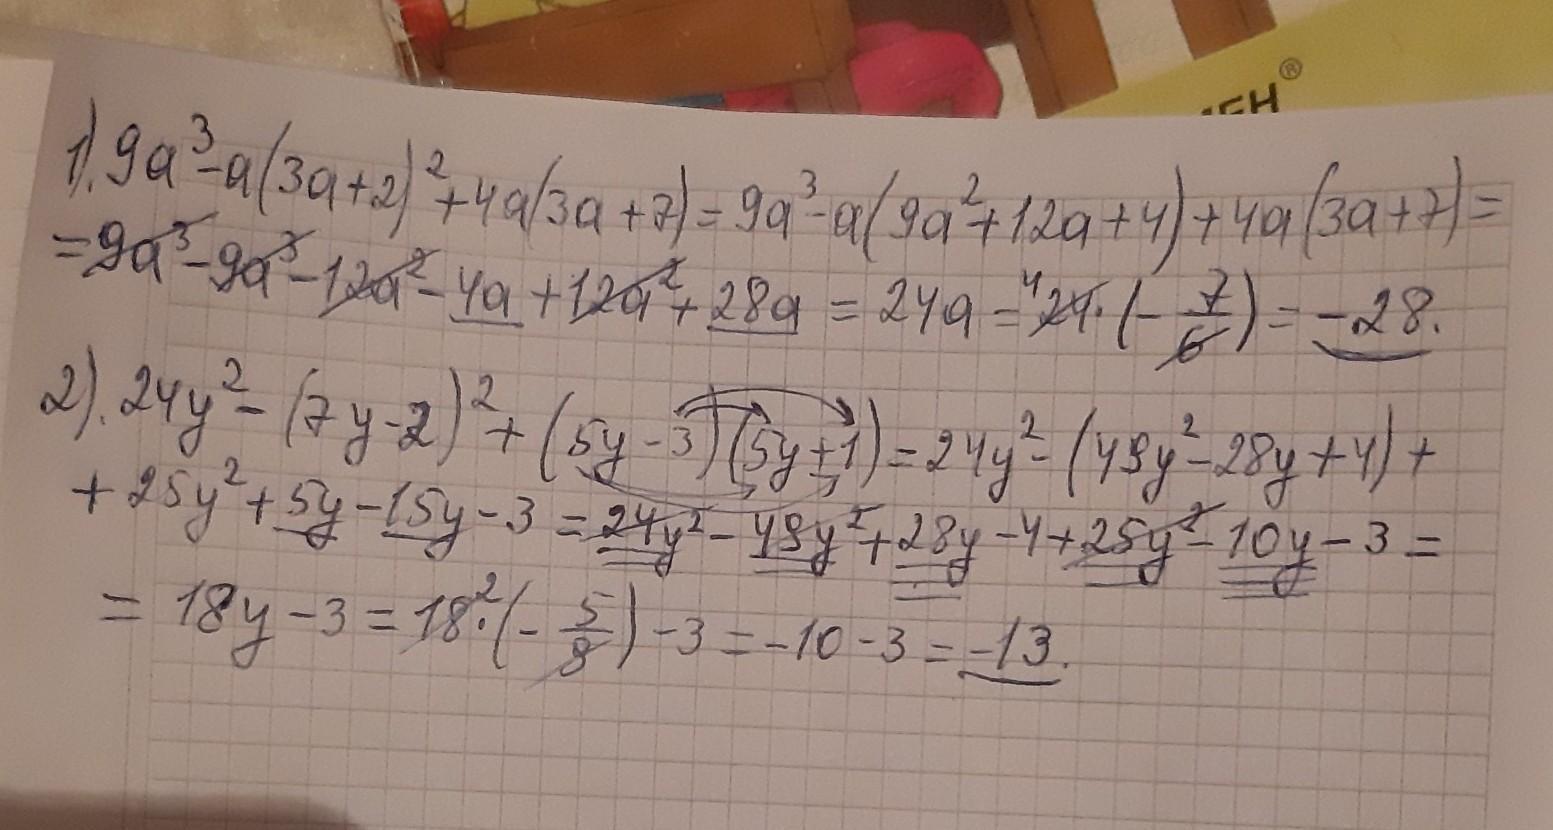 ИЕН®
1). 9a³-a(3a+2)²+4a(3a+7)=9a³-a(9a²+12a+4)+4a(3a+7)=
=9a³-9a³-12a²-4a+12a²+28a=24a=⁴24·(-7/6)=-28.
2). 24y²-(7y-2)²+(5y-3)(5y+1)=24y²-(49y²-28y+4)+
+25y²+5y-15y-3=24y²-49y²+28y-4+25y²-10y-3=
=18y-3=18²·(-5/9)-3=-10-3=-13.